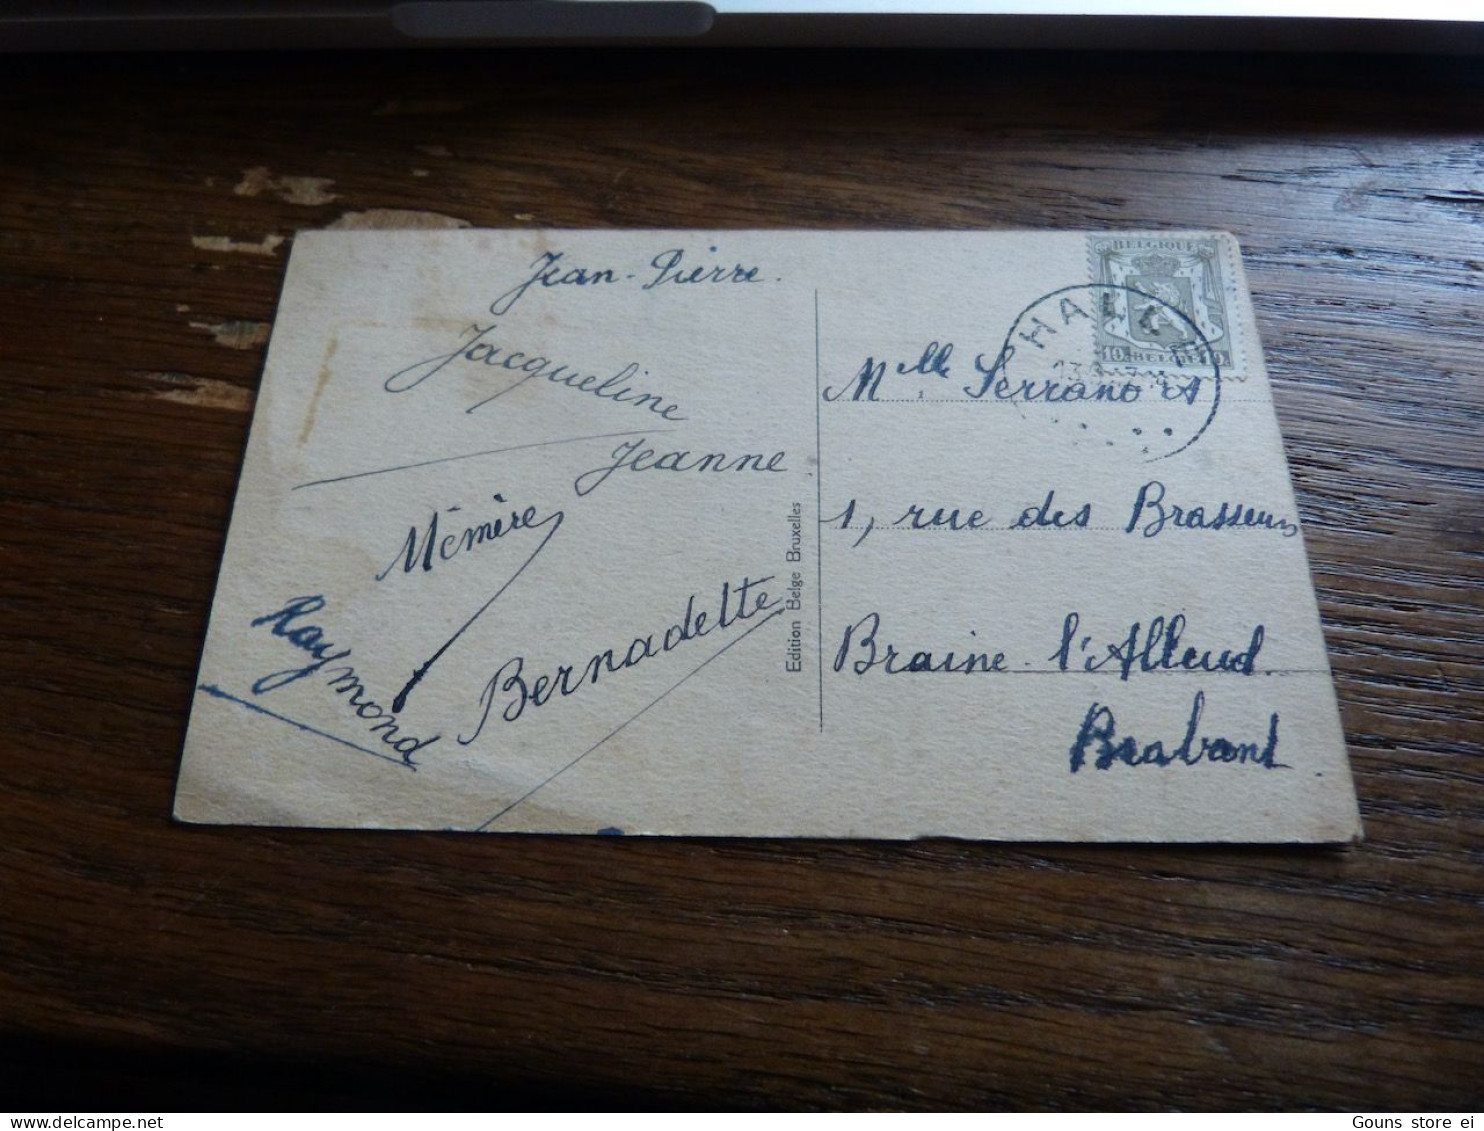 Jean-Pierre.
Jacqueline
Jeanne
Mémère
Raymond
Bernadette
Edition Belge Bruxelles
BELGIQUE
10 BELGIE 10
HAL
Mlle Serrano
1, rue des Brasseurs
Braine-l'Alleud.
Brabant
Gouns store ei